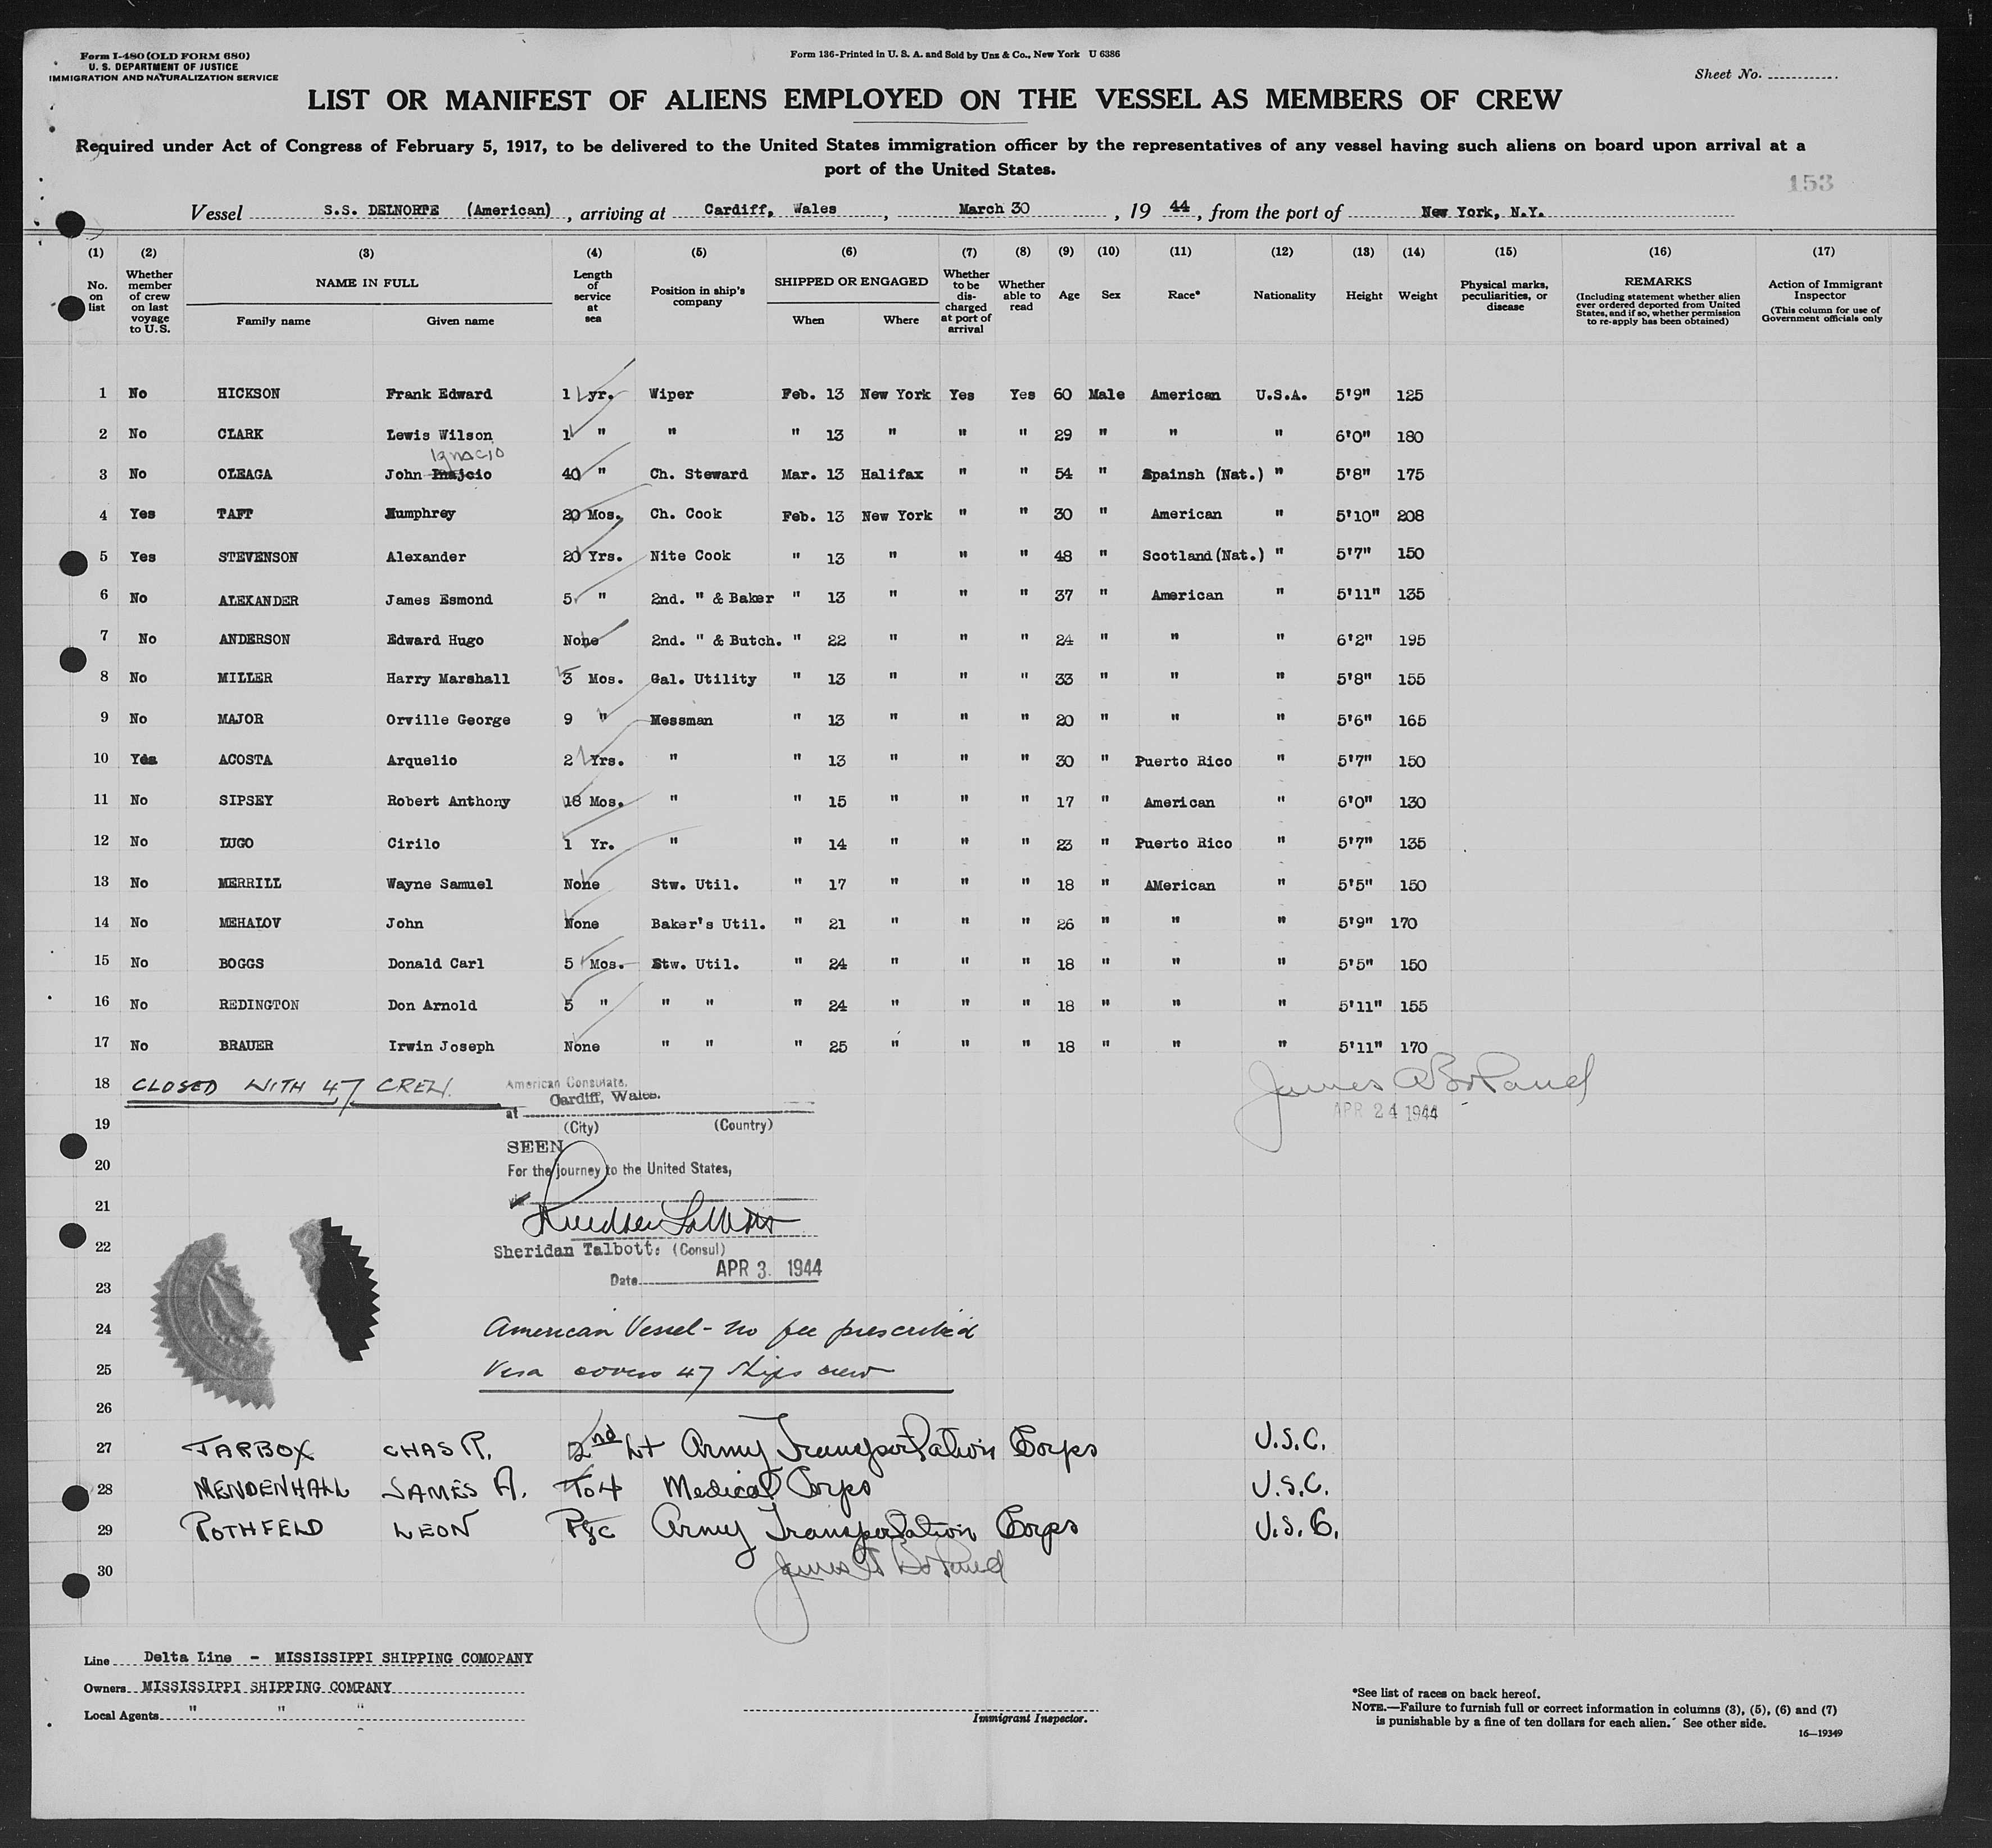 Form I-480 (OLD FORM 680)
U. S. DEPARTMENT OF JUSTICE
IMMIGRATION AND NATURALIZATION SERVICE
Form 136-Printed in U. S. A. and Sold by Unz & Co., New York U 6386
Sheet No.
LIST OR MANIFEST OF ALIENS EMPLOYED ON THE VESSEL AS MEMBERS OF CREW
Required under Act of Congress of February 5, 1917, to be delivered to the United States immigration officer by the representatives of any vessel having such aliens on board upon arrival at a
port of the United States.
153
Vessel S.S. DELNORTE (American), arriving at Cardiff, Wales, March 30, 19 44, from the port of New York, N.Y.
(1) (2) (3) (4) (5) (6) (7) (8) (9) (10) (11) (12) (13) (14) (15) (16) (17)
No. on list
Whether member of crew on last voyage to U.S.
NAME IN FULL
Family name Given name
Length of service at sea
Position in ship's company
SHIPPED OR ENGAGED
When Where
Whether to be discharged at port of arrival
Whether able to read
Age
Sex
Race*
Nationality
Height
Weight
Physical marks, peculiarities, or disease
REMARKS
(Including statement whether alien ever ordered deported from United States, and if so, whether permission to re-apply has been obtained)
Action of Immigrant Inspector
(This column for use of Government officials only
1 No HICKSON Frank Edward 1 yr. Wiper Feb. 13 New York Yes Yes 60 Male American U.S.A. 5'9" 125
2 No CLARK Lewis Wilson 1 " " " 13 " " " 29 " " " 6'0" 180
Ignacio
3 No OLEAGA John Inajcio 40 " Ch. Steward Mar. 13 Halifax " " 54 " Spainsh (Nat.) " 5'8" 175
4 Yes TAFT Humphrey 20 Mos. Ch. Cook Feb. 13 New York " " 30 " American " 5'10" 208
5 Yes STEVENSON Alexander 20 Yrs. Nite Cook " 13 " " " 48 " Scotland (Nat.) " 5'7" 150
6 No ALEXANDER James Esmond 5 " 2nd. " & Baker " 13 " " " 37 " American " 5'11" 135
7 No ANDERSON Edward Hugo None 2nd. " & Butch. " 22 " " " 24 " " " 6'2" 195
8 No MILLER Harry Marshall 3 Mos. Gal. Utility " 13 " " " 33 " " " 5'8" 155
9 No MAJOR Orville George 9 " Messman " 13 " " " 20 " " " 5'6" 165
10 Yes ACOSTA Arquelio 2 Yrs. " " 13 " " " 30 " Puerto Rico " 5'7" 150
11 No SIPSEY Robert Anthony 18 Mos. " " 15 " " " 17 " American " 6'0" 130
12 No LUGO Cirilo 1 Yr. " " 14 " " " 23 " Puerto Rico " 5'7" 135
13 No MERRILL Wayne Samuel None Stw. Util. " 17 " " " 18 " AMerican " 5'5" 150
14 No MEHALOV John None Baker's Util. " 21 " " " 26 " " " 5'9" 170
15 No BOGGS Donald Carl 5 Mos. Stw. Util. " 24 " " " 18 " " " 5'5" 150
16 No REDINGTON Don Arnold 5 " " " " 24 " " " 18 " " " 5'11" 155
17 No BRAUER Irwin Joseph None " " " 25 " " " 18 " " " 5'11" 170
18 CLOSED WITH 47 CREW.
James A Boland
APR 24 1944
American Consulate.
at Cardiff, Wales.
19 (City) (Country)
SEEN
20 For the journey to the United States,
21 via
22 Sheridan Talbott: (Consul)
23 Date APR 3. 1944
24 American Vessel - no fee prescribed
25 Visa covers 47 ships crew
26
27 TARBOX CHAS R. 2nd Lt Army Transportation Corps U.S.C.
28 MENDENHALL JAMES A. To4 Medical Corps U.S.C.
29 ROTHFELD LEON Pfc Army Transportation Corps U.S.C.
30 James A Boland
Line Delta Line - MISSISSIPPI SHIPPING COMOPANY
Owners MISSISSIPPI SHIPPING COMPANY
Local Agents " " "
Immigrant Inspector.
*See list of races on back hereof.
NOTE.—Failure to furnish full or correct information in columns (3), (5), (6) and (7)
is punishable by a fine of ten dollars for each alien. See other side.
16—19349